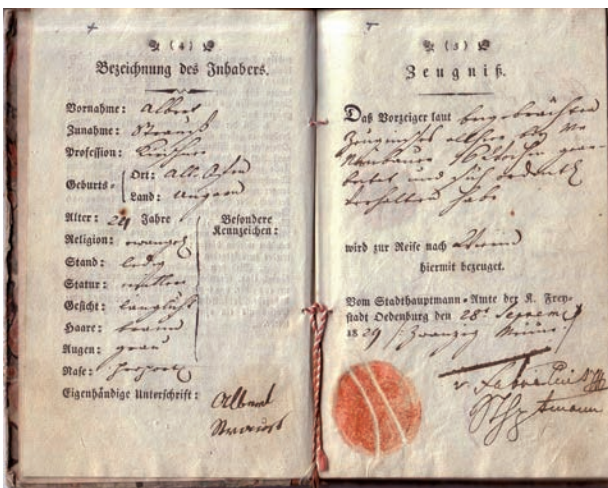 (4)
Bezeichnung des Inhabers.
Vornahme: Albert
Zunahme: Strauß
Profession:
Geburts-
Ort:
Land: Ungarn
Alter: 24 Jahre
Besondere
Kennzeichen:
Religion: evangel
Stand: ledig
Statur: mittlere
Gesicht: länglicht
Haare: braun
Augen: grau
Nase: proport
Eigenhändige Unterschrift:
Albert
Strauß
(5)
Zeugniß.
Daß Vorzeiger laut beygebrachten
Zeugnisses allhier bey
Neubauer 16 Wochen gear-
beitet und sich ordentl
verhalten habe
wird zur Reise nach
hiermit bezeuget.
Vom Stadthauptmann-Amte der K. Frey-
stadt Oedenburg den 28t Septem
1829 /: Zwanzig Neun :/
v.